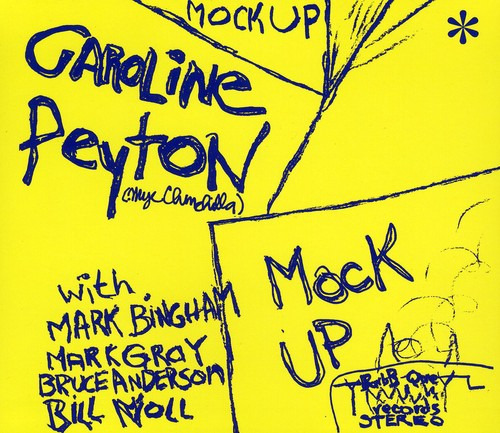 MOCKUP
*
CAROLINE
PEYTON
with
MARK BINGHAM
MARK GRAY
BRUCE ANDERSON
BILL NOLL
MOCK
UP
BarB-Que
records
STEREO